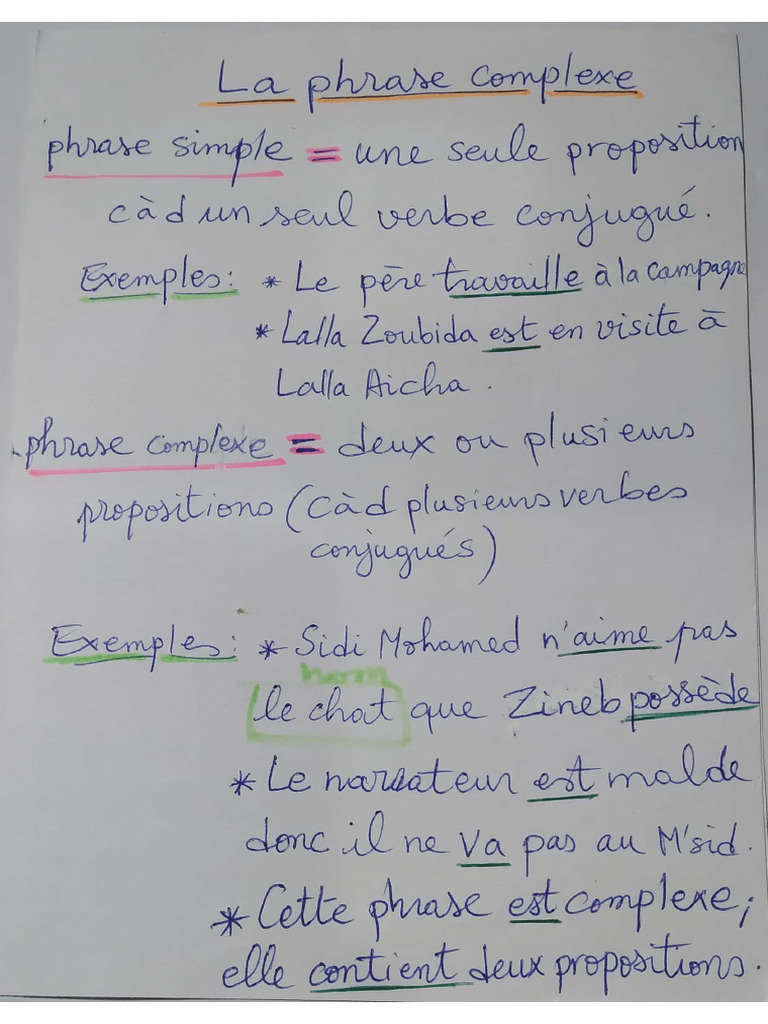 La phrase complexe
phrase simple = une seule proposition
càd un seul verbe conjugué.
Exemples: * Le père travaille à la campagne
* Lalla Zoubida est en visite à
Lalla Aicha.
phrase complexe = deux ou plusieurs
propositions (càd plusieurs verbes
conjugués)
Exemples: * Sidi Mohamed n'aime pas
nom
le chat que Zineb possède
* Le narrateur est malde
donc il ne va pas au M'sid.
* Cette phrase est complexe;
elle contient deux propositions.